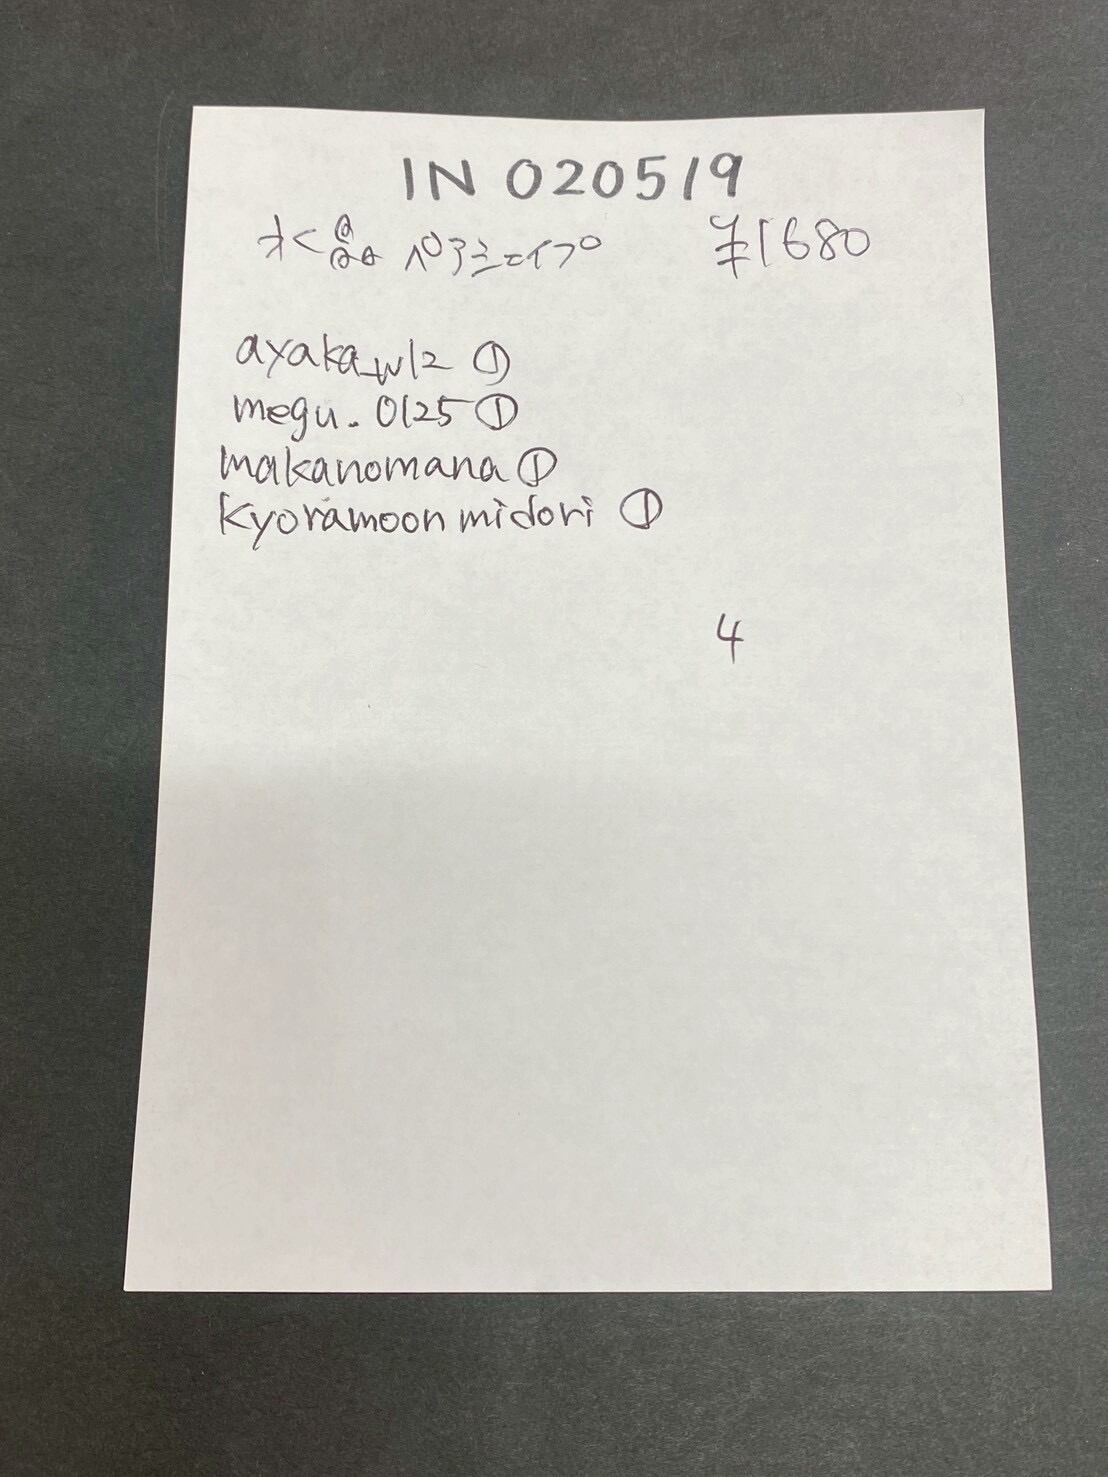 IN 020519
水晶 ペアシェイプ ¥1680
ayaka_w12 ①
megu.0125 ①
makanomana ①
kyoramoon midori ①
4